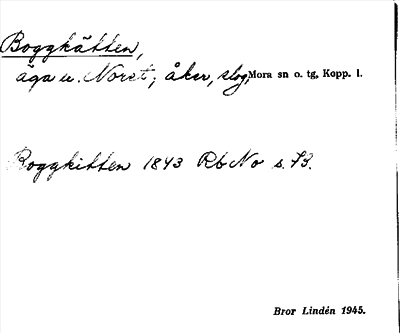 Boggkätten,
äga u. Noret; åker, slog, Mora sn o. tg, Kopp. l.
Boggkitten 1843 Rb No s. 73.
Bror Lindén 1945.